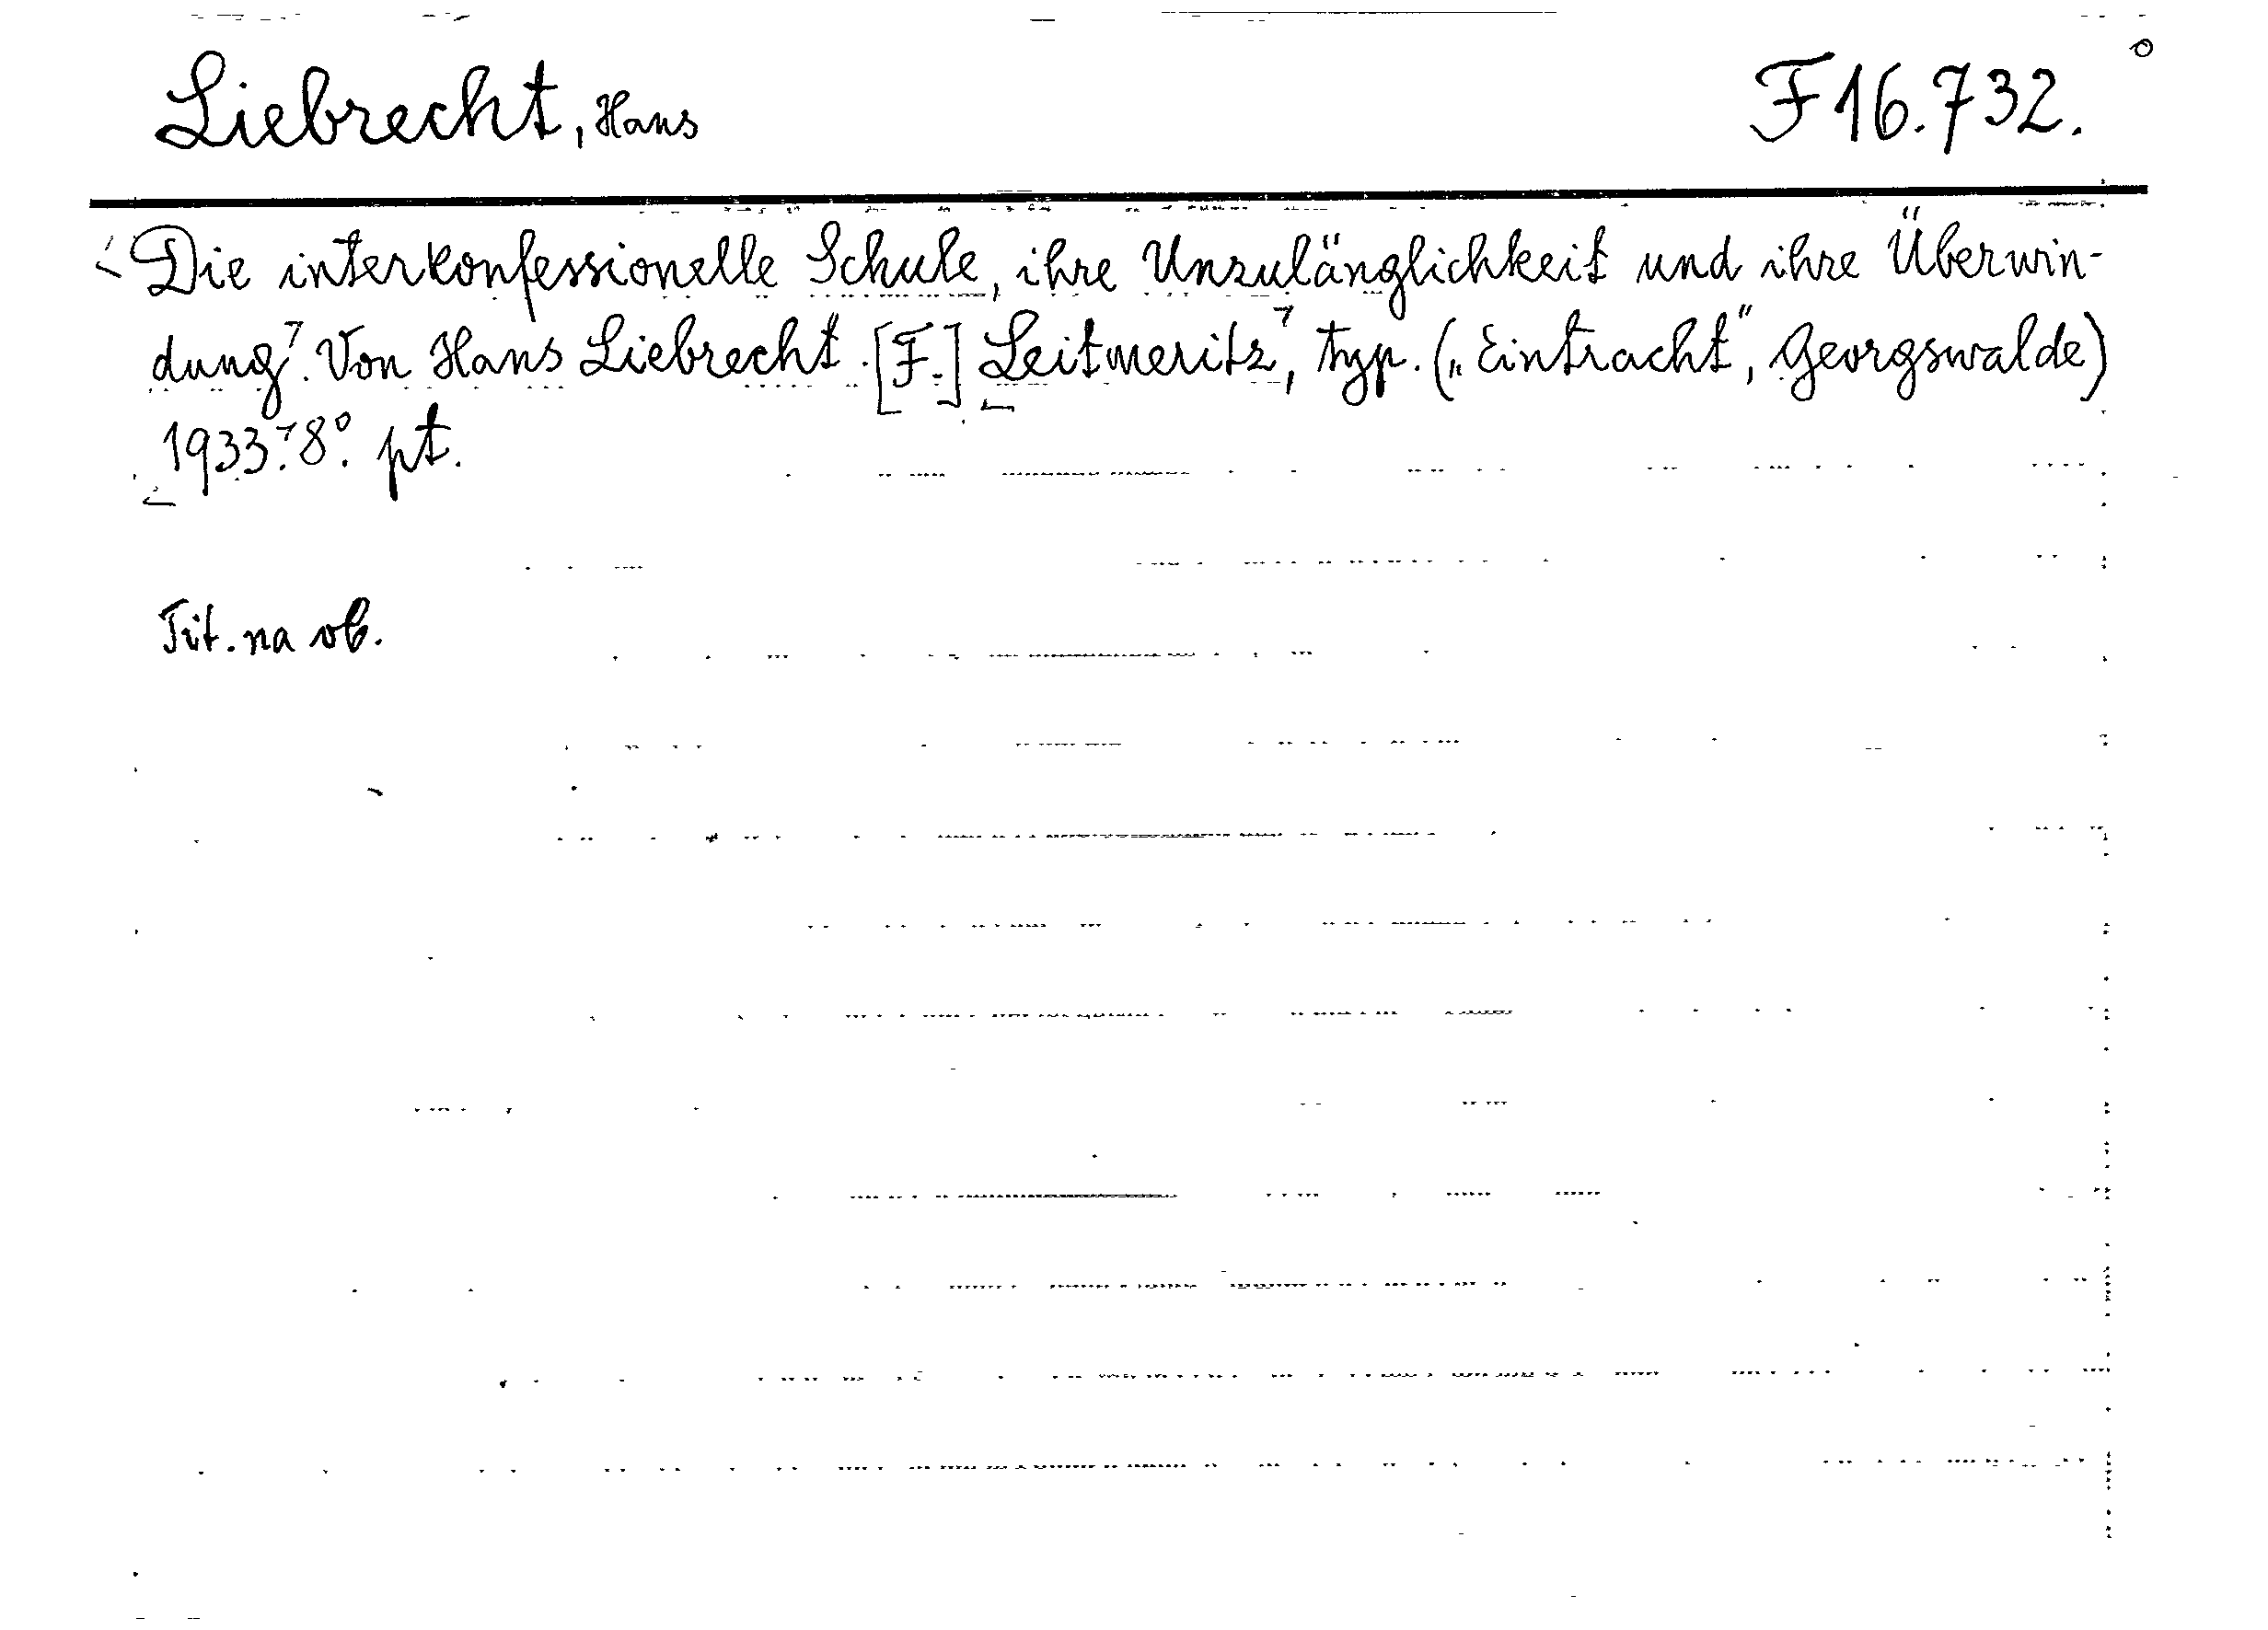 Liebrecht, Hans F 16.732.
Die interkonfessionelle Schule, ihre Unzulänglichkeit und ihre Überwin-
dung. Von Hans Liebrecht. [F.] Leitmeritz, typ. („Eintracht“, Georgswalde)
1933. 8°. pt.
Tit. na ob.